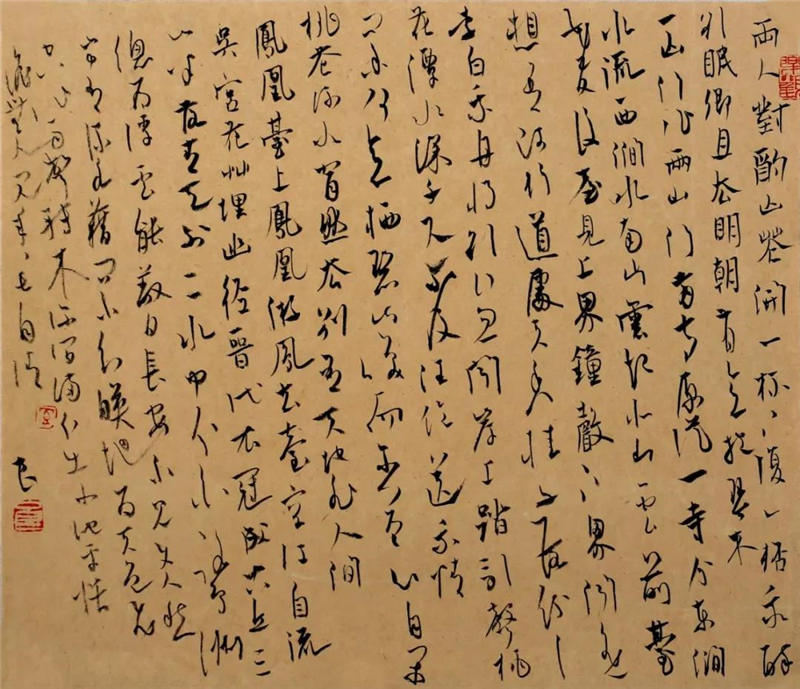 兩人對酌山花開一杯々復一杯我醉
欲眠卿且去明朝有意抱琴來
一山門作兩山門兩寺原從一寺分東澗
水流西澗水南山雲起北山雲前臺
花發後臺見上界鐘聲下界聞遙
想吾師行道處天香桂子落紛々
李白乘舟將欲行忽聞岸上踏歌聲桃
花潭水深千尺不及汪倫送我情
問余何意栖碧山笑而不答心自閑
桃花流水窅然去別有天地非人間
鳳凰臺上鳳凰遊鳳去臺空江自流
吳宮花草埋幽徑晉代衣冠成古丘三
山半落青天外二水中分白鷺洲
總為浮雲能蔽日長安不見使人愁